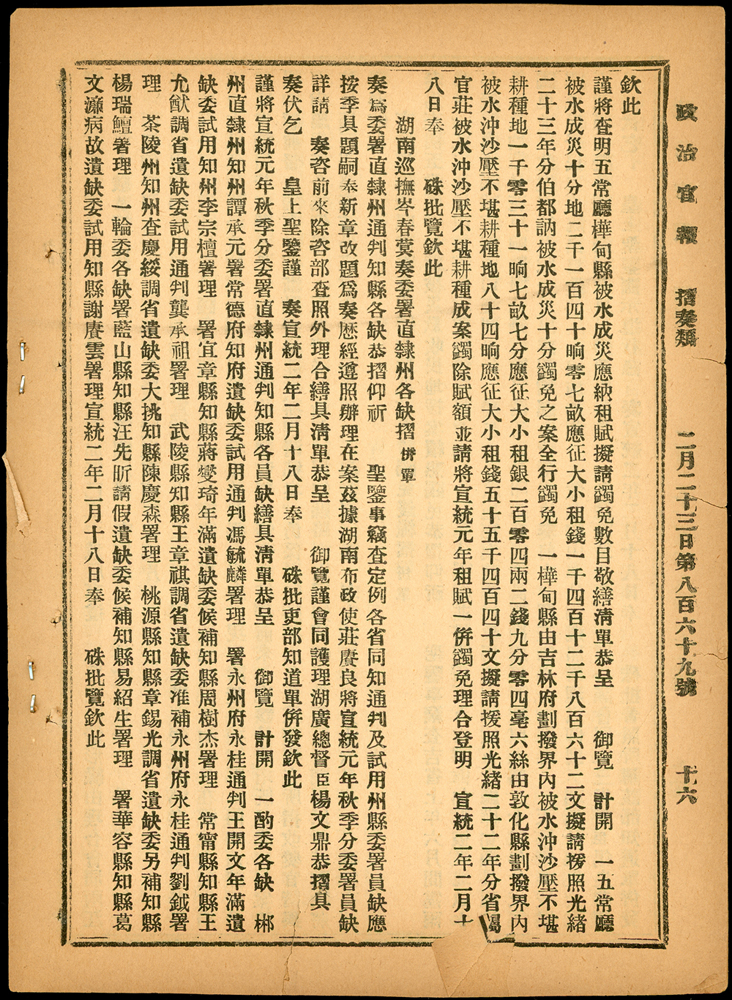 政治官報 摺奏類 二月二十三日第八百六十九號 十六
欽此
謹將查明五常廳樺甸縣被水成災應納租賦擬請蠲免數目敬繕清單恭呈 御覽 計開 一五常廳
被水成災十分地二千一百四十晌零七畝應征大小租錢一千四百十二千八百六十二文擬請援照光緒
二十三年分伯都訥被水成災十分蠲免之案全行蠲免 一樺甸縣由吉林府劃撥界內被水沖沙壓不堪
耕種地一千零三十一晌七畝七分應征大小租銀二百零四兩二錢九分零四毫六絲由敦化縣劃撥界內
被水沖沙壓不堪耕種地八十四晌應征大小租錢五十五千四百四十文擬請援照光緒二十二年分省屬
官莊被水沖沙壓不堪耕種成案蠲除賦額並請將宣統元年租賦一併蠲免理合登明 宣統二年二月十
八日奉 硃批覽欽此
湖南巡撫岑春蓂奏委署直隸州各缺摺 併單
奏爲委署直隸州通判知縣各缺恭摺仰祈 聖鑒事竊查定例各省同知通判及試用州縣委署員缺應
按季具題嗣奉新章改題爲奏歷經遵照辦理在案茲據湖南布政使莊賡良將宣統元年秋季分委署員缺
詳請 奏咨前來除咨部查照外理合繕具清單恭呈 御覽謹會同護理湖廣總督臣楊文鼎恭摺具
奏伏乞 皇上聖鑒謹 奏宣統二年二月十八日奉 硃批吏部知道單併發欽此
謹將宣統元年秋季分委署直隸州通判知縣各員缺繕具清單恭呈 御覽 計開 一酌委各缺 郴
州直隸州知州譚承元署常德府知府遺缺委試用通判馮毓麟署理 署永州府永桂通判王開文年滿遺
缺委試用知州李宗檀署理 署宜章縣知縣蔣燮琦年滿遺缺委候補知縣周樹杰署理 常甯縣知縣王
允猷調省遺缺委試用通判龔承祖署理 武陵縣知縣王章祺調省遺缺委准補永州府永桂通判劉鉞署
理 茶陵州知州查慶綏調省遺缺委大挑知縣陳慶森署理 桃源縣知縣章錫光調省遺缺委另補知縣
楊瑞鱣署理 一輪委各缺署藍山縣知縣汪先昕請假遺缺委候補知縣易紹生署理 署華容縣知縣葛
文濂病故遺缺委試用知縣謝賡雲署理宣統二年二月十八日奉 硃批覽欽此